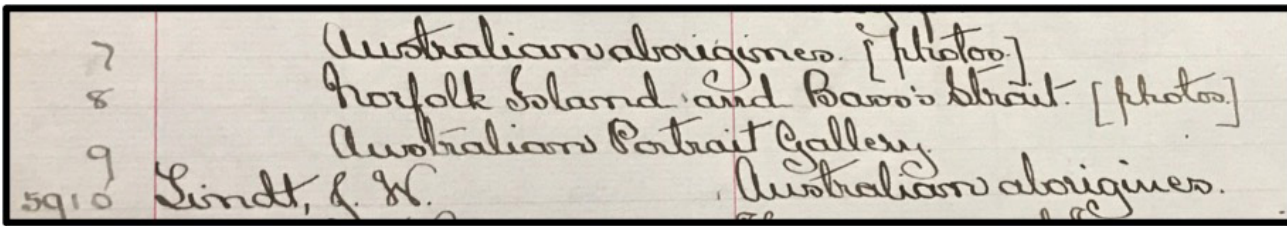 7 Australian aborigines. [photos.]
8 Norfolk Island and Bass's Strait. [photos]
9 Australian Portrait Gallery.
5910 Lindt, J. W. Australian aborigines.